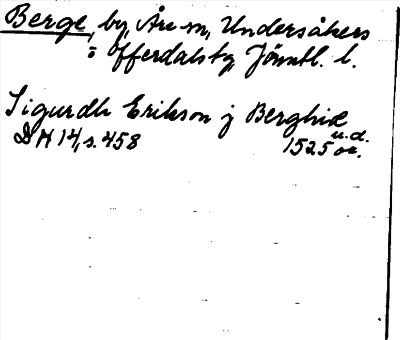 Berge, by, Åre sn, Undersåkers
o Offerdals tg Jämtl. l.
Sigurdh Erikson j Berghiæ
u.d.
DN 14, s. 458 1525 or.